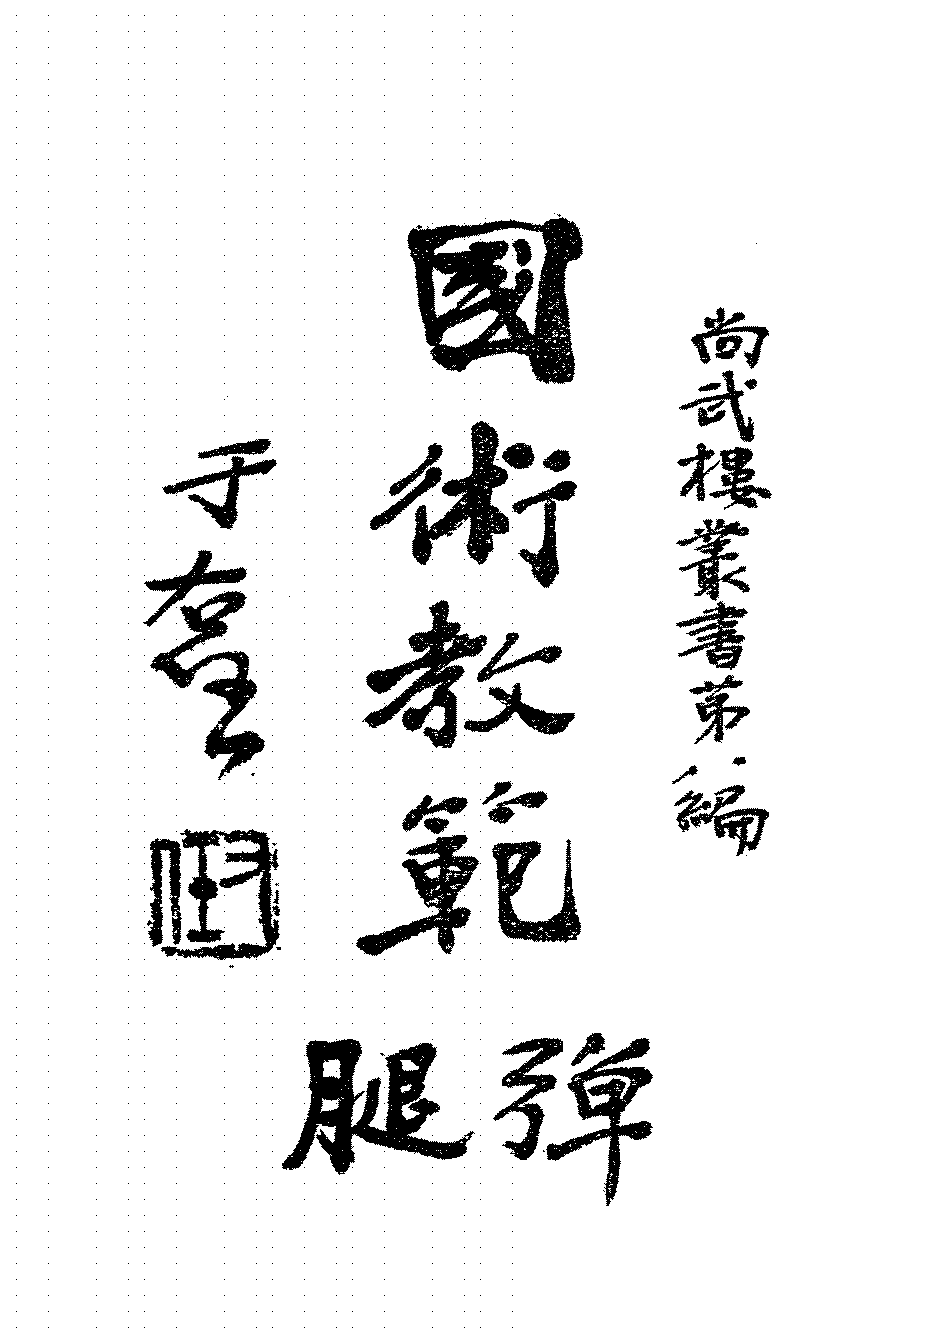 尚武樓叢書第八編
國術教範
彈腿
于右任